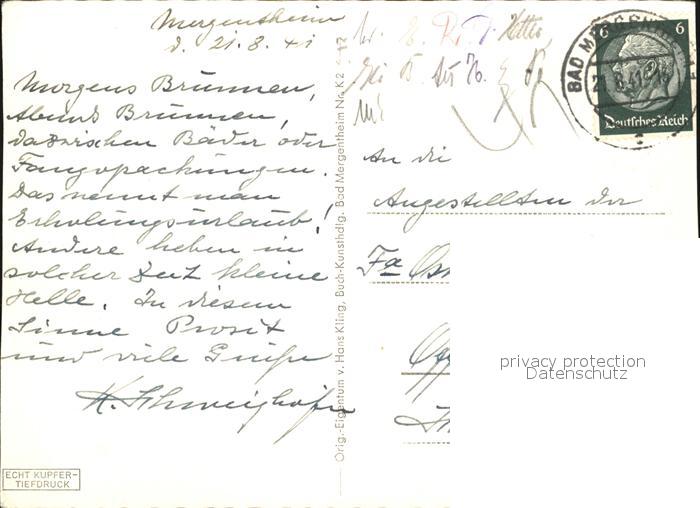 Mergentheim
d. 21.8.41
Morgens Brunnen,
Abends Brunnen,
dazwischen Bäder oder
Fangopackungen.
Das nennt man
Erholungsurlaub!
Andere heben in
solcher Zeit kleine
Helle. In diesem
Sinne Prosit
und viele Grüße
K. Schweighofer
ECHT KUPFER-
TIEFDRUCK
Orig.-Eigentum v. Hans Kling, Buch-Kunsthdlg. Bad Mergentheim Nr. K2
6 6
Deutsches Reich
BAD MERGENTHEIM
21.8.41
An die
Angestellten der
Fa
privacy protection
Datenschutz